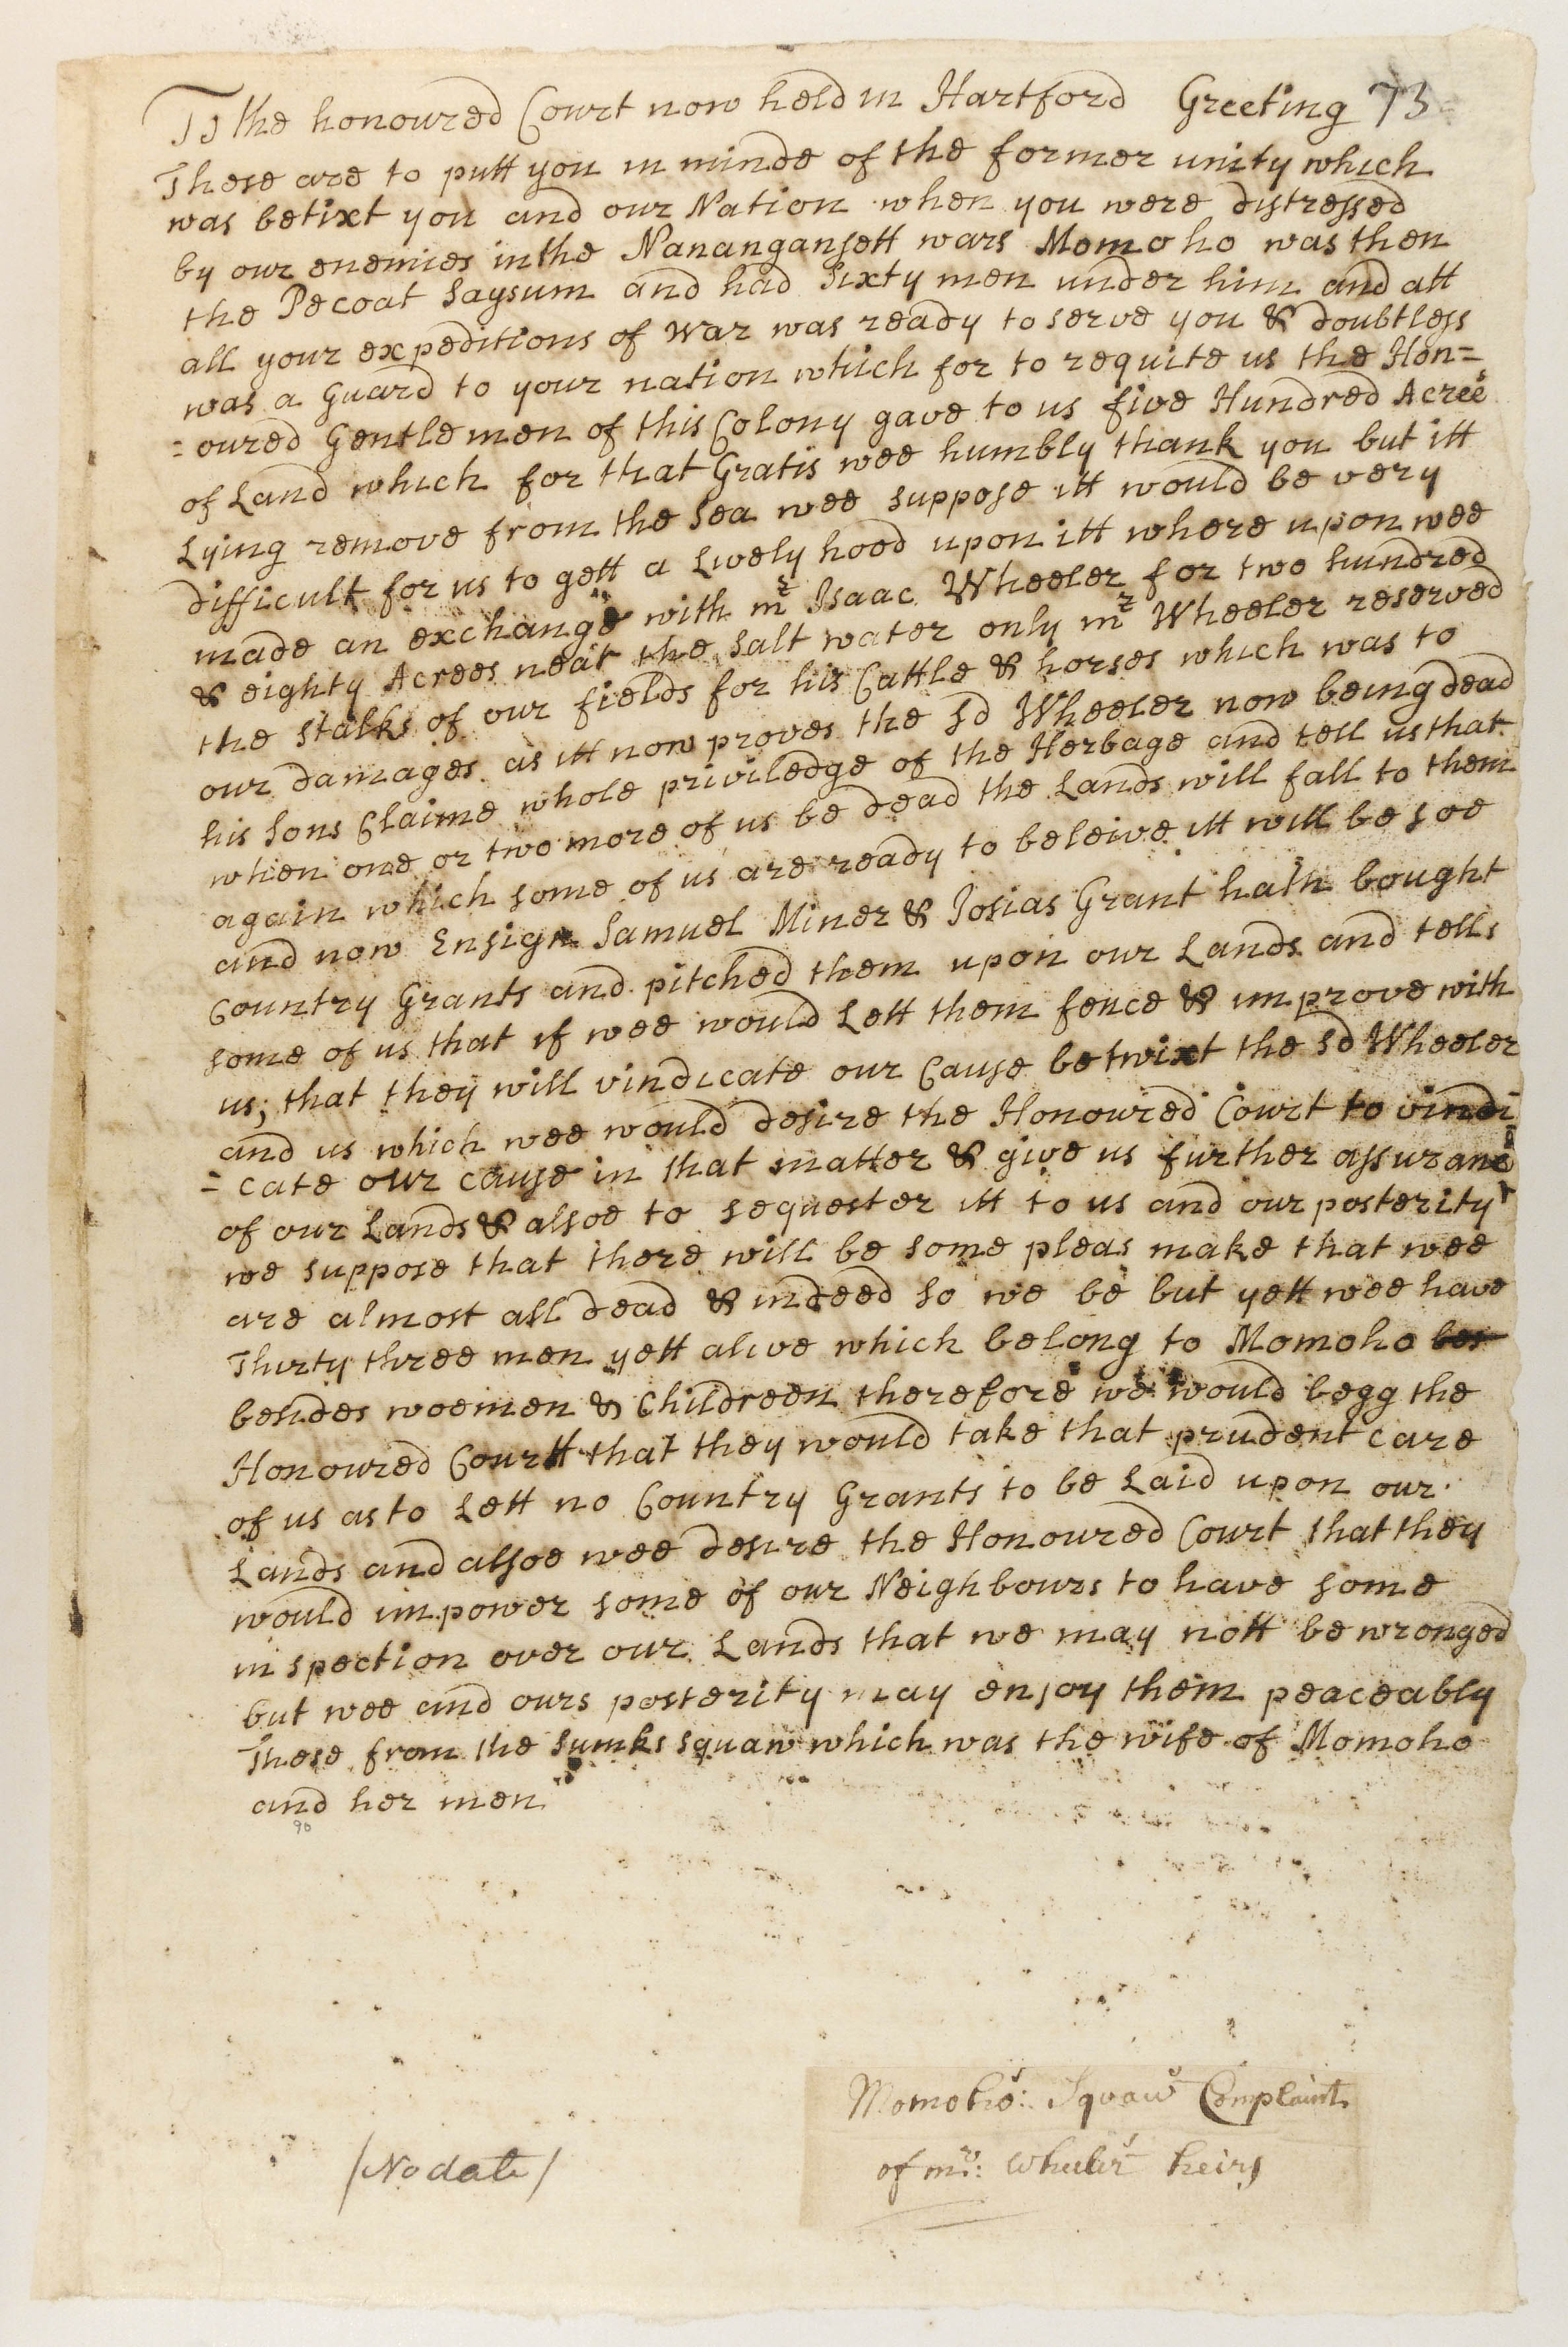 To the honoured Court now held in Hartford Greeting 73
These are to putt you in minde of the former unity which
was betixt you and our Nation when you were distressed
by our enemies in the Nanangansett wars Momoho was then
the Pecoat Saysum and had Sixty men under him and att
all your expeditions of war was ready to serve you & doubtless
was a Guard to your nation which for to requite us the Hon=
=oured Gentlemen of this Colony gave to us five Hundred Acrees
of Land which for that Gratis wee humbly thank you but itt
Lying remove from the Sea wee suppose itt would be very
difficult for us to gett a Lively hoed upon itt where upon wee
made an exchange with mr Isaac Wheeler for two hundred
& eighty Acrees near the Salt water only mr Wheeler reserved
the Stalks of our fields for his Cattle & horses which was to
our damages as itt now proves the sd Wheeler now being dead
his Sons Claime whole priviledge of the Herbage and tell us that
when one or two more of us be dead the Lands will fall to them
again which some of us are ready to beleive itt will be soe
and now Ensign Samuel Miner & Josias Grant hath bought
Country Grants and pitched them upon our Lands and tells
some of us that if wee would Lett them fence & improve with
us; that they will vindicate our Cause betwixt the sd Wheeler
and us which wee would desire the Honoured Court to vindi
=cate our cause in that matter & give us further assurance
of our Lands & alsoe to sequester itt to us and our posterity
we suppose that there will be some pleas make that wee
are almost all dead & indeed so we be but yett wee have
Thirty three men yett alive which belong to Momoho bes
besides woemen & Childreen therefore we would begg the
Honoured Courtt that they would take that prudent care
of us as to Lett no Country Grants to be Laid upon our
Lands and alsoe wee desire the Honoured Court that they
would impower some of our Neighbours to have some
inspection over our Lands that we may nott be wronged
but wee and ours posterity may enjoy them peaceably
These from the Sumks squaw which was the wife of Momoho
and her men
90
Momohos: Squaws Complaint
of mr: Whelers heirs
/No date/